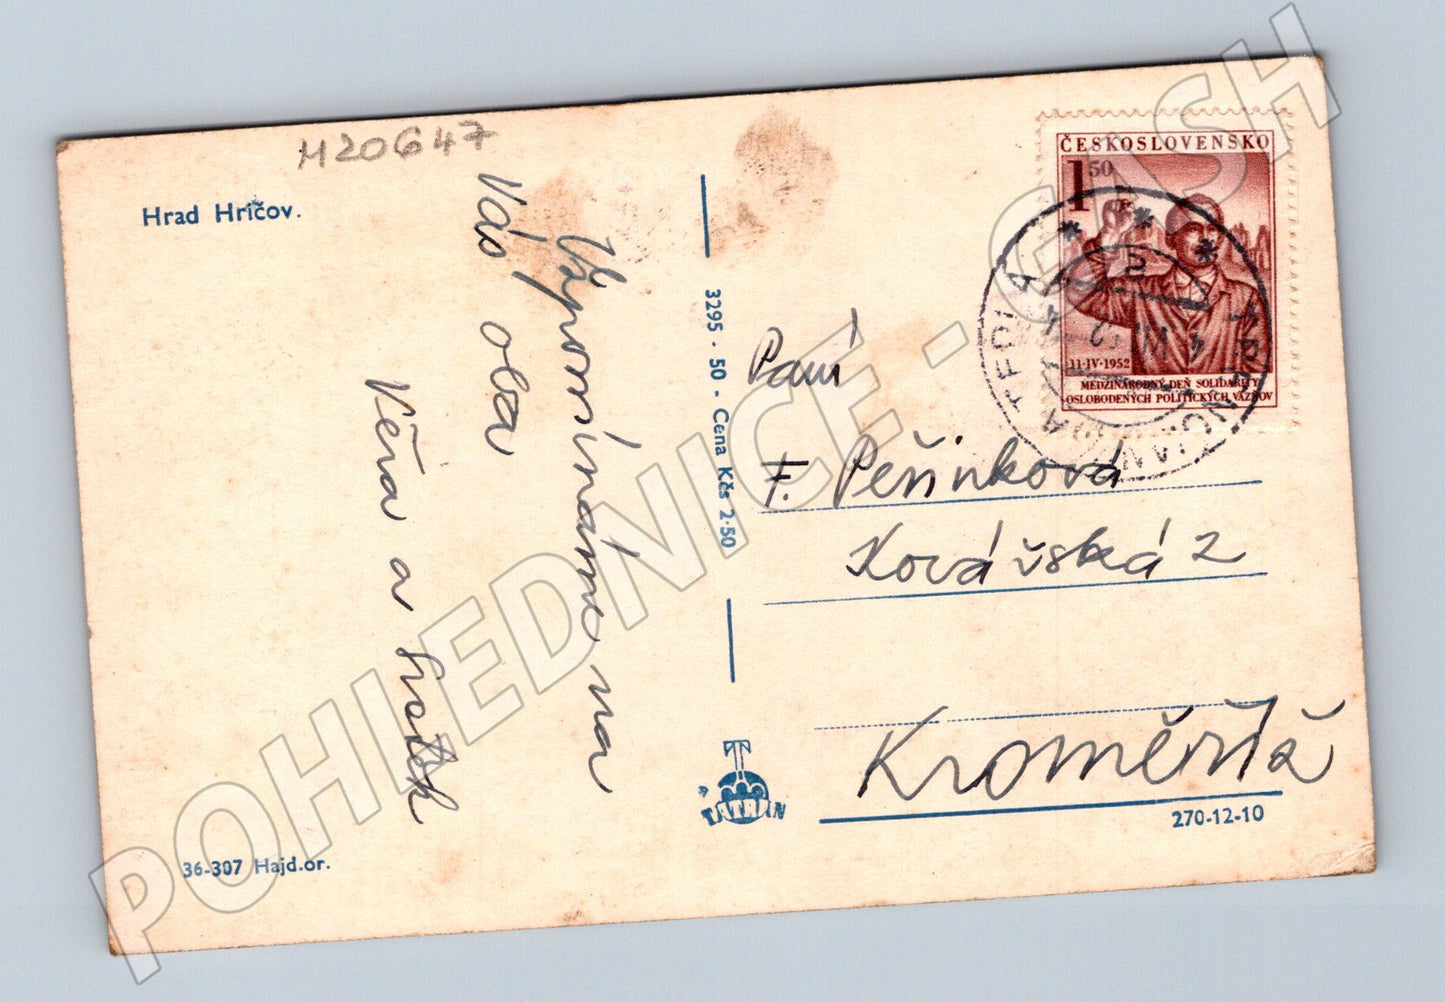 M20647
Hrad Hričov.
Vzpomínáme na
Vás oba
Věra a
36-307 Hajd.or.
3295 - 50 - Cena Kčs 2·50
TATRAN
ČESKOSLOVENSKO
1 50
11·IV·1952
MEDZINÁRODNÝ DEŇ SOLIDARITY
OSLOBODENÝCH POLITICKÝCH VÄZŇOV
Paní
F. Pešinková
Kovářská 2
Kroměříž
270-12-10
POHLEDNICE - CASH